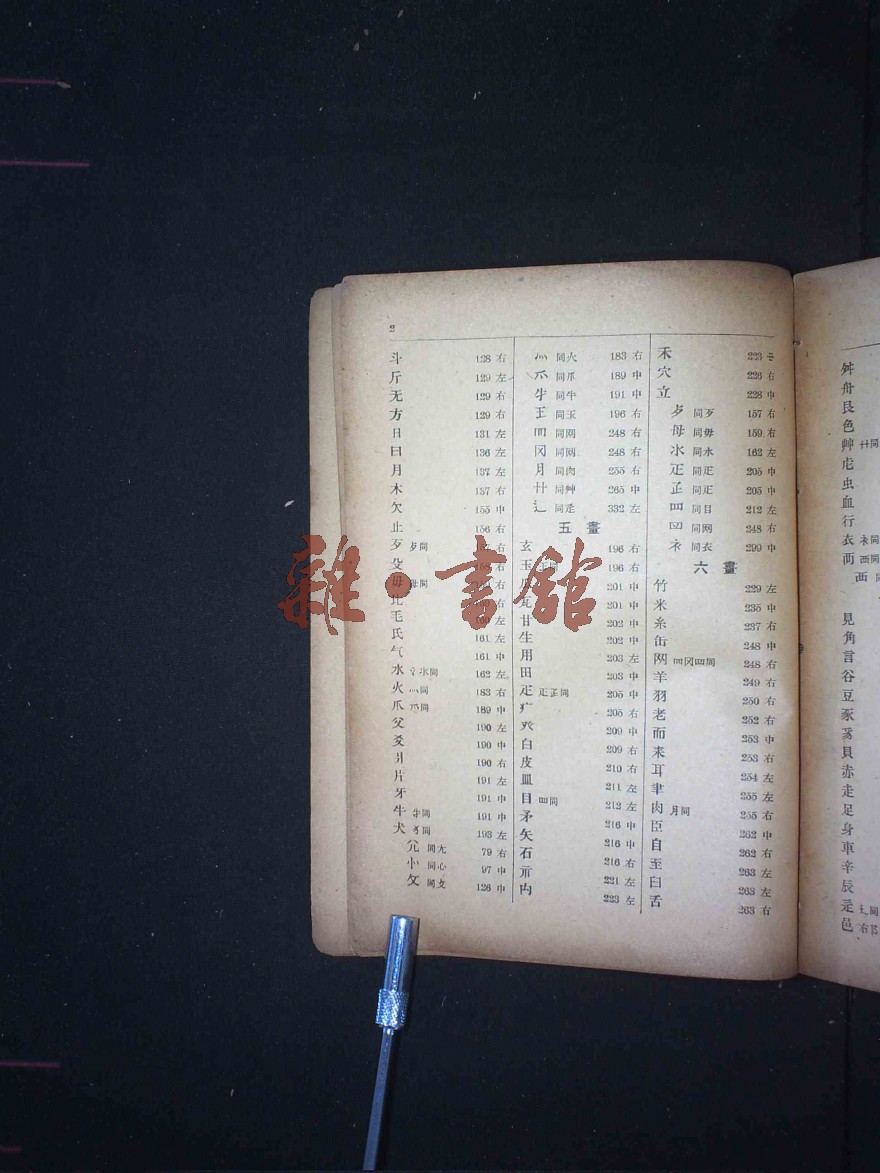 2
斗 128 右
斤 129 左
无 129 右
方 129 右
日 131 左
曰 136 左
月 137 左
木 137 右
欠 155 中
止 156 右
歹 歺同 右
殳 右
毋 母同
比
毛 左
氏 161 左
气 161 中
水 氵氺同 162 左
火 灬同 183 右
爪 爫同 189 中
父 190 左
爻 190 中
爿 190 右
片 191 左
牙 191 中
牛 牜同 191 中
犬 犭同 193 左
尣 同尢 79 右
㣺 同心 97 中
攵 同攴 126 中
灬 同火 183 右
爫 同爪 189 中
牜 同牛 191 中
王 同玉 196 右
罒 同网 248 右
冈 同网 248 右
月 同肉 255 右
艹 同艸 265 中
辶 同辵 332 左
五畫
玄 196 右
玉 王同 196 右
瓜 201 中
瓦 201 中
甘 202 中
生 202 中
用 203 左
田 203 中
疋 205 中
疒 205 右
癶 209 中
白 209 右
皮 210 右
皿 211 左
目 罒同 212 左
矛 216 中
矢 216 中
石 216 右
示 221 左
禸 223 左
禾 223
穴 226 右
立 228 中
歺 同歹 157 右
母 同毋 159 右
氺 同水 162 左
疋 同疋 205 中
𤴔 同疋 205 中
罒 同目 212 左
同网 248 右
衤 同衣 299 中
六畫
竹 229 左
米 235 中
糸 237 右
缶 248 中
网 248 右
羊 249 右
羽 250 右
老 252 右
而 253 中
耒 253 右
耳 254 左
聿 255 左
肉 月同 255 右
臣 262 中
自 262 右
至 263 左
臼 263 左
舌 263 右
舛
舟
艮
色
艸 艹同
虍
虫
血
行
衣 衤同
襾 西同
西
見
角
言
谷
豆
豕
豸
貝
赤
走
足
身
車
辛
辰
辵 辶同
邑
雜·書館